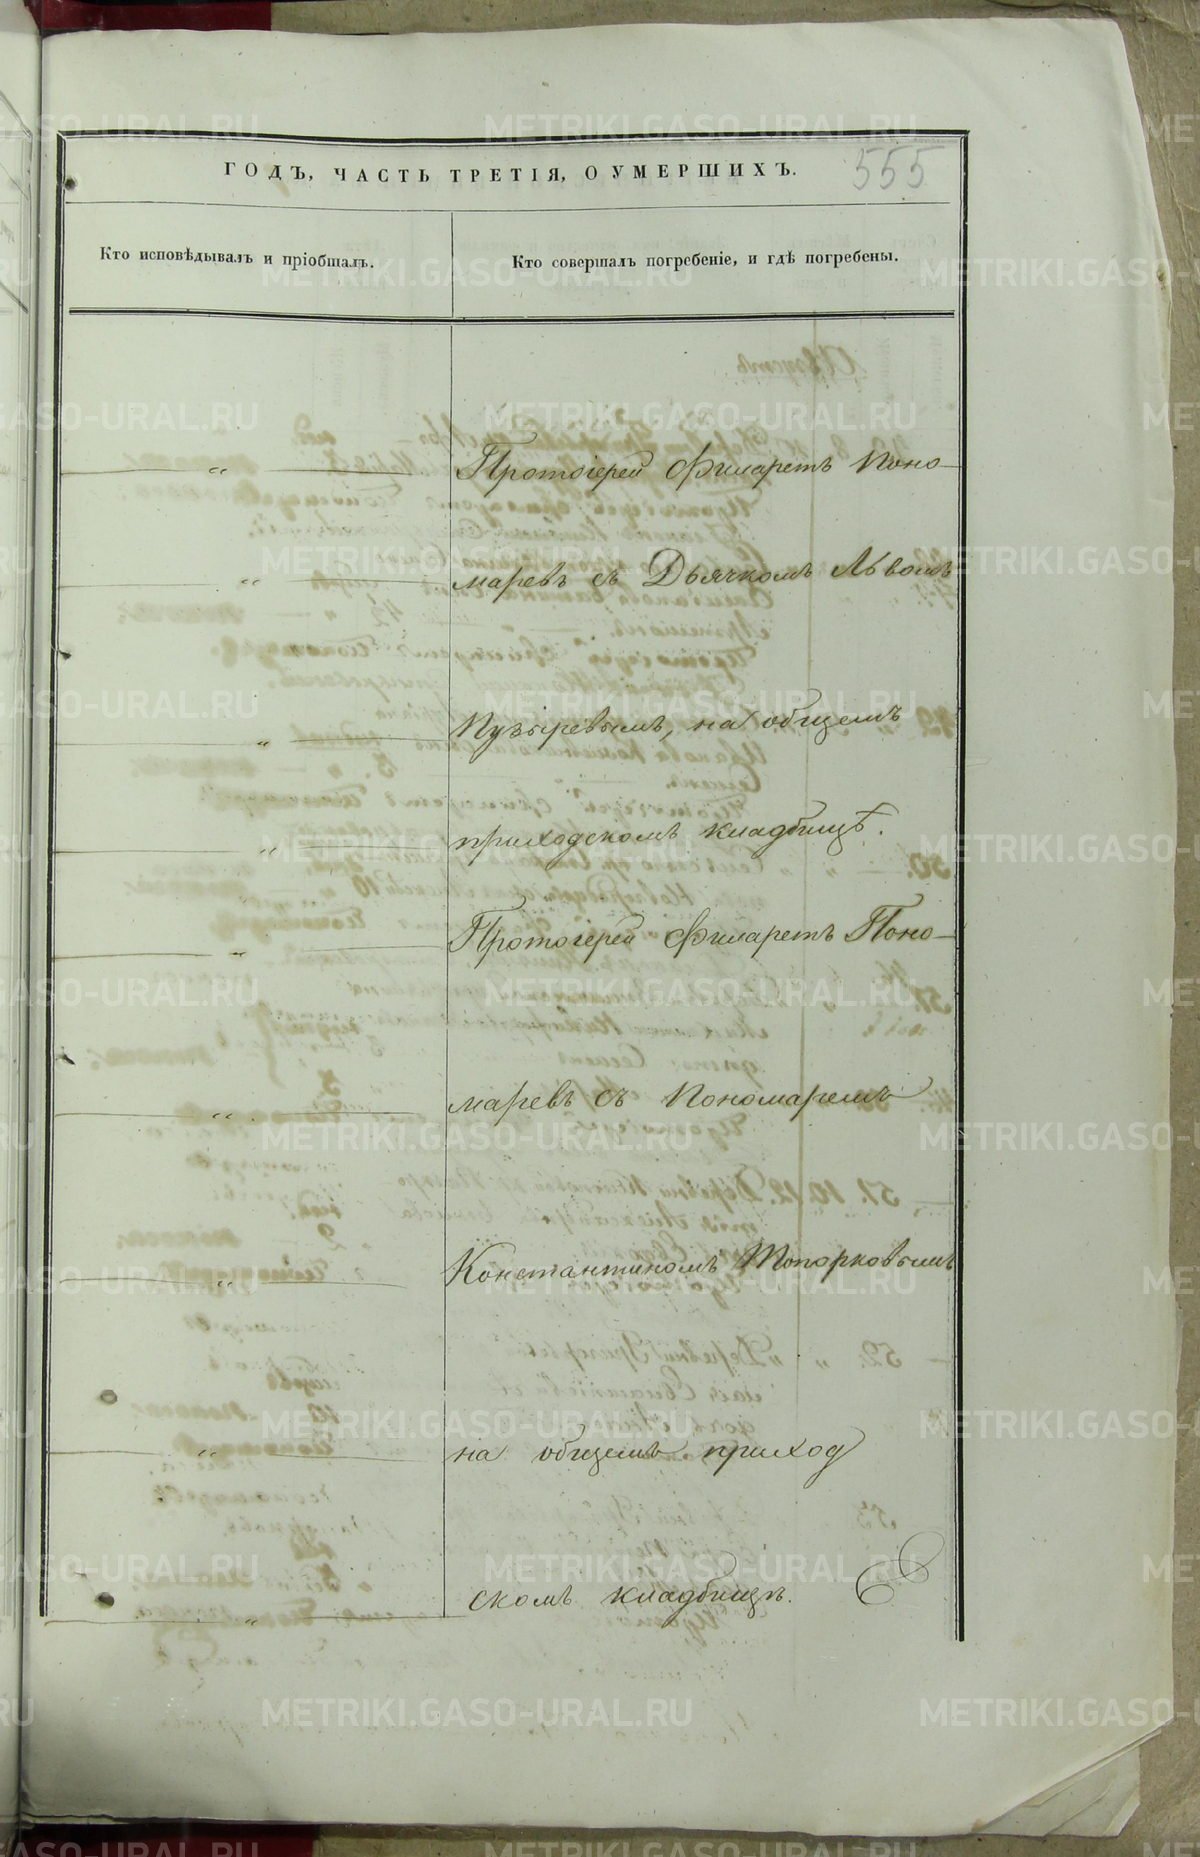 ГОДЪ, ЧАСТЬ ТРЕТІЯ, О УМЕРШИХЪ.
555
Кто исповѣдывалъ и пріобщалъ.
Кто совершалъ погребеніе, и гдѣ погребены.
„ Протоіерей Филаретъ Поно-
„ маревъ съ Дьячкомъ Львомъ
„ Пузыревымъ, на общемъ
„ приходскомъ кладбищѣ.
„ Протоіерей Филаретъ Поно-
„ маревъ съ Пономаремъ
„ Константиномъ Топорковымъ
„ на общемъ приход
„ скомъ кладбищѣ.
METRIKI.GASO-URAL.RU